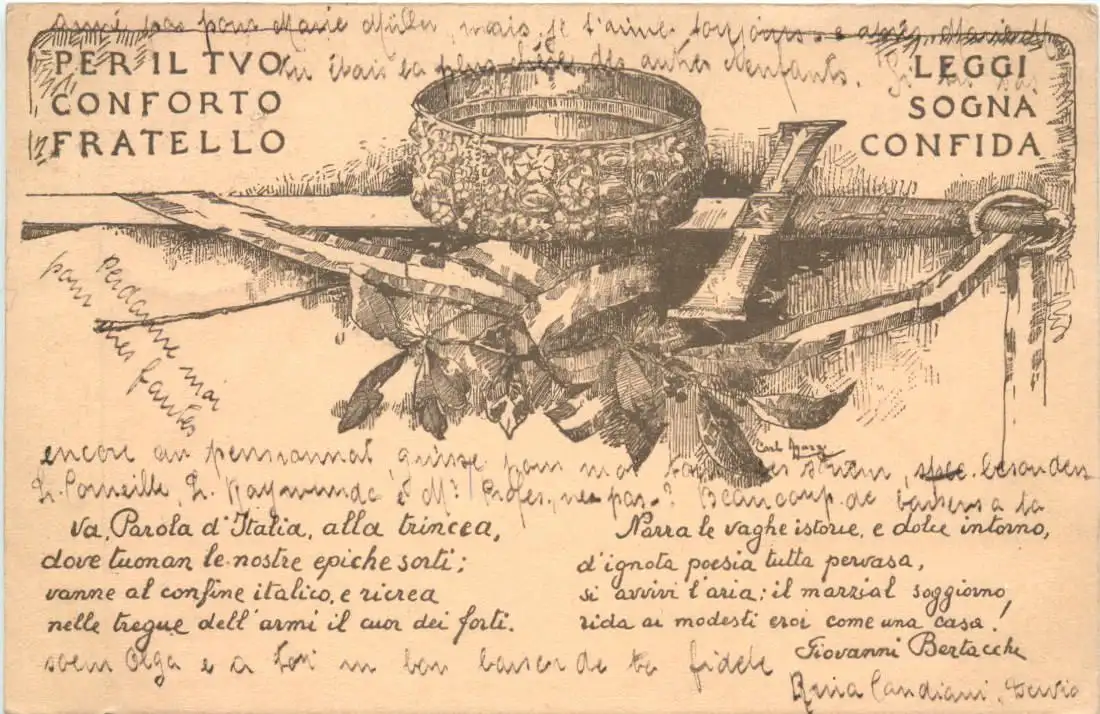 amié pas pour Marie Müller, mais je t'aime toujours e après Marie M
tu étais la plus chère des autres enfants. Si tu
PER IL TVO
CONFORTO
FRATELLO
LEGGI
SOGNA
CONFIDA
perdonne moi
pour mes fautes
Carl
encore au pensionnat, pour besonders
L. Corneille, L. Raymunda e Mr Profes, nes pas-? Beaucoup de baisers a ta
Va, Parola d'Italia, alla trincea,
dove tuonan le nostre epiche sorti;
vanne al confine italico, e ricrea
nelle tregue dell'armi il cuor dei forti.
Narra le vaghe istorie, e dolce intorno,
d'ignota poesia tutta pervasa,
si avvivi l'aria; il marzial soggiorno,
rida ai modesti eroi come una casa.
Giovanni Bertacchi
soeur Olga e a Toi un bon baiser de ta fidele
Candiani, Dervio